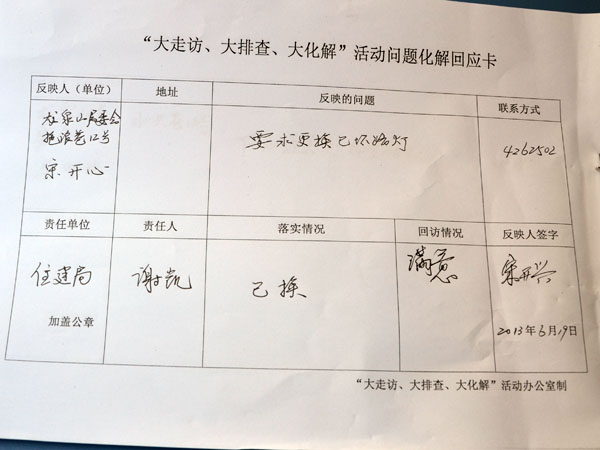 “大走访、大排查、大化解”活动问题化解回应卡
反映人（单位）
地址
反映的问题
联系方式
龙泉山居委会
12号
宋开心
要求更换已坏路灯
4262502
责任单位
责任人
落实情况
回访情况
反映人签字
住建局
谢凯
已换
满意
加盖公章
2013年6月19日
“大走访、大排查、大化解”活动办公室制